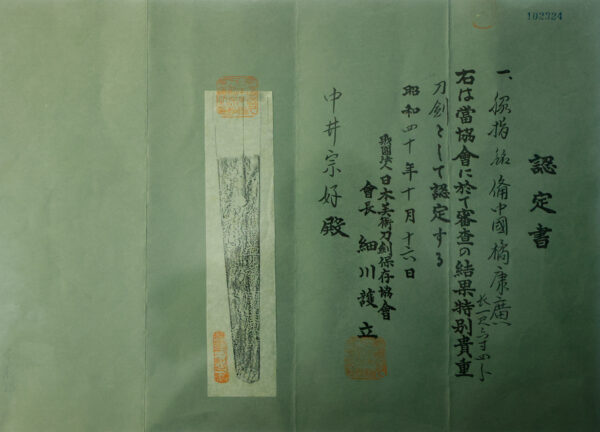 102324
認定書
一、脇指 銘 備中國橘康廣
長一尺六寸四分
右は當協會に於て審査の結果特別貴重
刀劍として認定する
昭和四十年十月十六日
財團法人日本美術刀劍保存協會
會長 細川護立
中井宗好殿